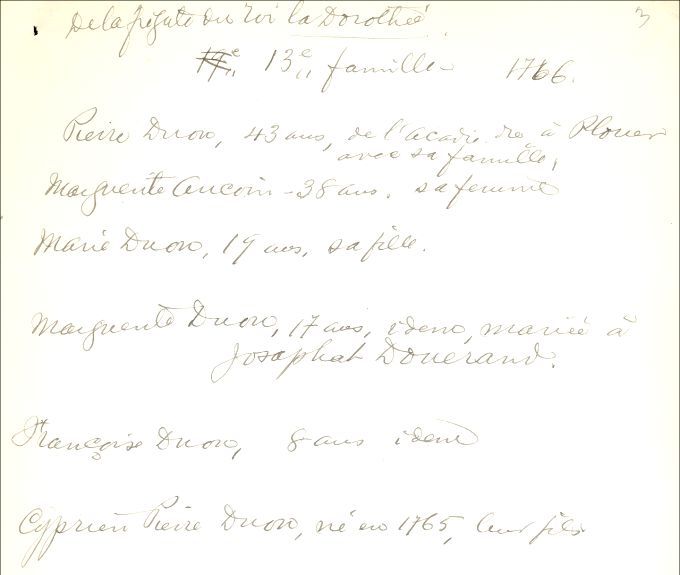 De la frégate du Roi la Dorothée. 3
13e famille 1766.
Pierre Duon, 43 ans, de l'Acadie, à Plouer
avec sa famille,
Marguerite Aucoin - 38 ans, sa femme
Marie Duon, 19 ans, sa fille.
Marguerite Duon, 17 ans, idem, mariée à
Josaphat Douerand.
Françoise Duon, 8 ans idem
Cyprien Pierre Duon, né en 1765, leur fils